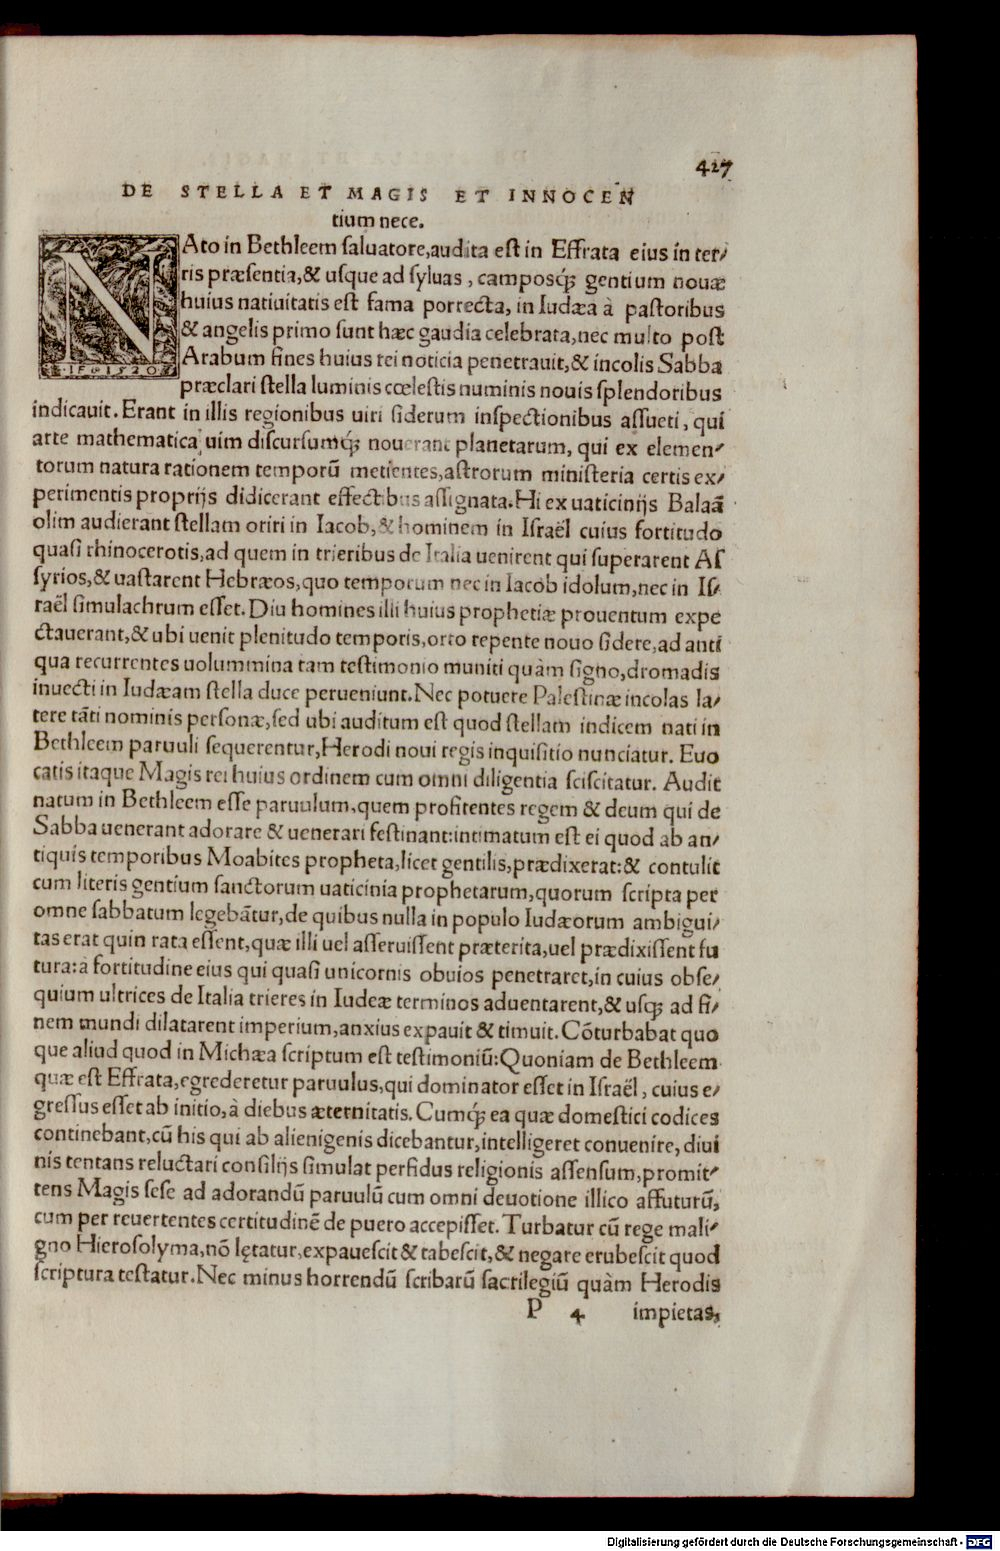 427
DE STELLA ET MAGIS ET INNOCEN
tium nece.
NAto in Bethleem saluatore,audita est in Effrata eius in ter/
ris præsentia,& usque ad syluas, camposq́; gentium nouæ
huius natiuitatis est fama porrecta, in Iudæa à pastoribus
& angelis primo sunt hæc gaudia celebrata,nec multo post
Arabum fines huius rei noticia penetrauit,& incolis Sabba
præclari stella luminis cœlestis numinis nouis splendoribus
indicauit. Erant in illis regionibus uiri siderum inspectionibus assueti, qui
arte mathematica uim discursumq́; nouerant planetarum, qui ex elemen/
torum natura rationem temporũ metientes,astrorum ministeria certis ex/
perimentis proprijs didicerant effectibus assignata.Hi ex uaticinijs Balaã
olim audierant stellam oriri in Iacob,& hominem in Israël cuius fortitudo
quasi rhinocerotis,ad quem in trieribus de Italia uenirent qui superarent As
syrios,& uastarent Hebræos,quo temporum nec in Iacob idolum,nec in Is/
raël simulachrum esset.Diu homines illi huius prophetiæ prouentum expe
ctauerant,& ubi uenit plenitudo temporis,orto repente nouo sidere,ad anti
qua recurrentes uolummina tam testimonio muniti quàm signo,dromadis
inuecti in Iudæam stella duce perueniunt.Nec potuere Palestinæ incolas la/
tere tãti nominis personæ,sed ubi auditum est quod stellam indicem nati in
Bethleem paruuli sequerentur,Herodi noui regis inquisitio nunciatur. Euo
catis itaque Magis rei huius ordinem cum omni diligentia sciscitatur. Audit
natum in Bethleem esse paruulum,quem profitentes regem & deum qui de
Sabba uenerant adorare & uenerari festinant:intimatum est ei quod ab an/
tiquis temporibus Moabites propheta,licet gentilis,prædixerat:& contulit
cum literis gentium sanctorum uaticinia prophetarum,quorum scripta per
omne sabbatum legebãtur,de quibus nulla in populo Iudæorum ambigui/
tas erat quin rata essent,quæ illi uel asseruissent præterita,uel prædixissent fu
tura:à fortitudine eius qui quasi unicornis obuios penetraret,in cuius obse/
quium ultrices de Italia trieres in Iudeæ terminos aduentarent,& usq; ad fi/
nem mundi dilatarent imperium,anxius expauit & timuit. Cõturbabat quo
que aliud quod in Michæa scriptum est testimoniũ:Quoniam de Bethleem
quæ est Effrata,egrederetur paruulus,qui dominator esset in Israël, cuius e/
gressus esset ab initio,à diebus æternitatis. Cumq́; ea quæ domestici codices
continebant,cũ his qui ab alienigenis dicebantur,intelligeret conuenire, diui
nis tentans reluctari consilijs simulat perfidus religionis assensum,promit/
tens Magis sese ad adorandũ paruulũ cum omni deuotione illico affuturũ,
cum per reuertentes certitudinẽ de puero accepisset. Turbatur cũ rege mali/
gno Hierosolyma,nõ lętatur,expauescit & tabescit,& negare erubescit quod
scriptura testatur.Nec minus horrendũ scribarũ sacrilegiũ quàm Herodis
P 4 impietas,
·IF·1520·
Digitalisierung gefördert durch die Deutsche Forschungsgemeinschaft - DFG